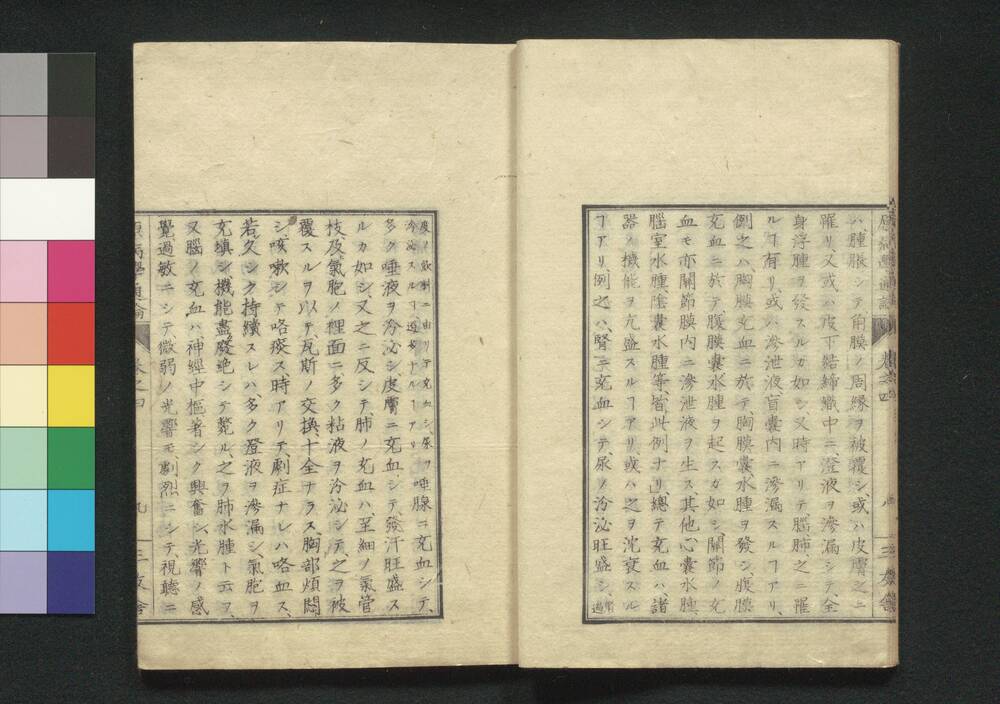 原病學通論 卷之四 三友舎
ハ腫脹シテ角膜ノ周縁ヲ被覆シ、或ハ皮膚之ニ
罹リ又或ハ皮下結締織中ニ、澄液ヲ滲漏シテ、全
身浮腫ヲ發スルガ如シ、又時アリテ腦肺、之ニ罹
ルヿ有リ、或ハ滲泄液盲囊内ニ滲漏スルヿアリ、
例之ハ胸膜充血ニ於テ、胸膜囊水腫ヲ發シ、腹膜
充血ニ於テ、腹膜囊水腫ヲ起スガ如シ、關節ノ充
血モ亦關節膜内ニ滲泄液ヲ生ス、其他心囊水腫、
腦室水腫陰囊水腫等、皆此例ナリ、總テ充血ハ、諸
器ノ機能ヲ亢盛スルヿアリ、或ハ之ヲ沈衰スル
ヿアリ、例之ハ、腎ニ充血シテ、尿ノ分泌旺盛シ、
度ノ飲料ニ由リテ充血シ尿ヲ
分泌スルヿ過多ナルヿアリ
唾腺ニ充血シテ、
多ク唾液ヲ分泌シ、皮膚ニ充血シテ、發汗旺盛ス
ルカ如シ、又之ニ反シテ、肺ノ充血ハ、至細ノ氣管
枝及氣胞ノ裡面ニ多ク粘液ヲ分泌シテ、之ヲ被
覆スルヲ以テ、瓦斯ノ交換十全ナラス、胸部煩悶
シ、咳嗽シテ咯痰ス、時アリテ、劇症ナレハ咯血ス、
若久シク持續スレハ、多ク澄液ヲ滲漏シ、氣胞ヲ
充填シ、機能盡廢絶シテ斃ル、之ヲ肺水腫ト云フ、
又腦ノ充血ハ、神經中樞著シク興奮シ、光響ノ感
覺過敏ニシテ微弱ノ光響モ劇烈ニシテ、視聽ニ
原病學通論 卷之四 九 三友舎